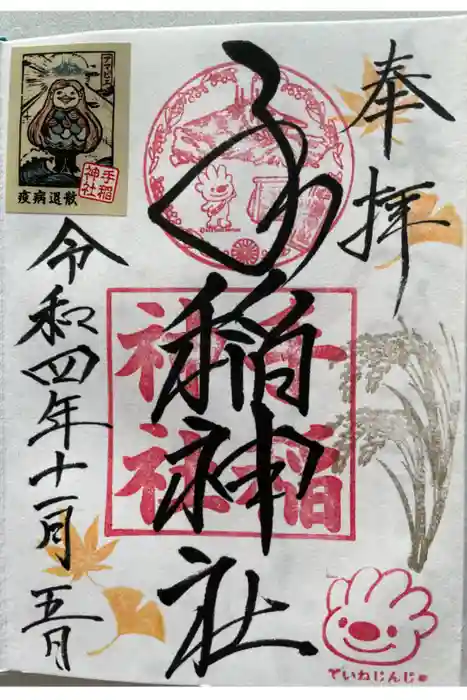 奉拝
手稲神社
手稲
神社
令和四年十一月五日
アマビエ
手稲
神社
疫病退散
ていねじんじゃ